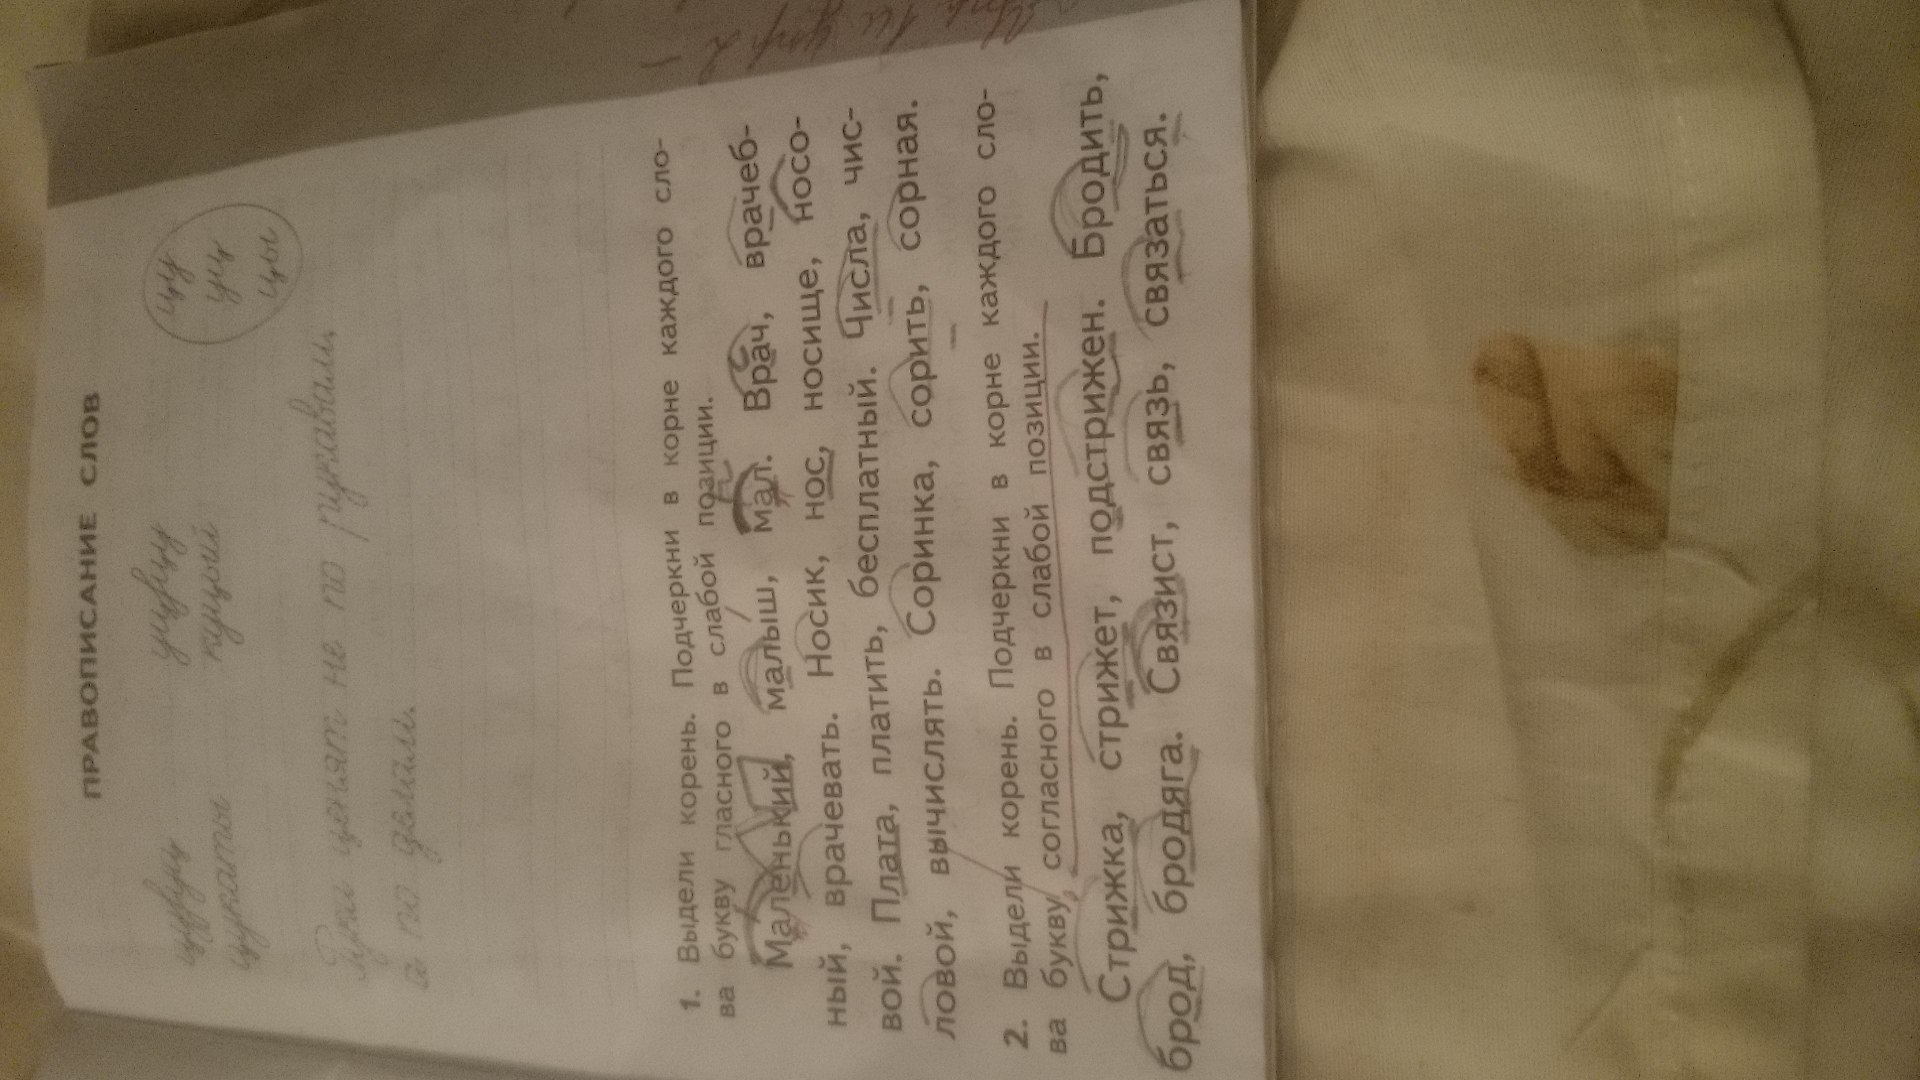 ПРАВОПИСАНИЕ СЛОВ
цу
цукаты куцый
цы
Руки ценят не по рукавам,
а по делам.
1. Выдели корень. Подчеркни в корне каждого сло-
ва букву гласного в слабой позиции.
Маленький, малыш, мал. Врач, врачеб-
ный, врачевать. Носик, нос, носище, носо-
вой. Плата, платить, бесплатный. Числа, чис-
ловой, вычислять. Соринка, сорить, сорная.
2. Выдели корень. Подчеркни в корне каждого сло-
ва букву согласного в слабой позиции.
Стрижка, стрижет, подстрижен. Бродить,
брод, бродяга. Связист, связь, связаться.